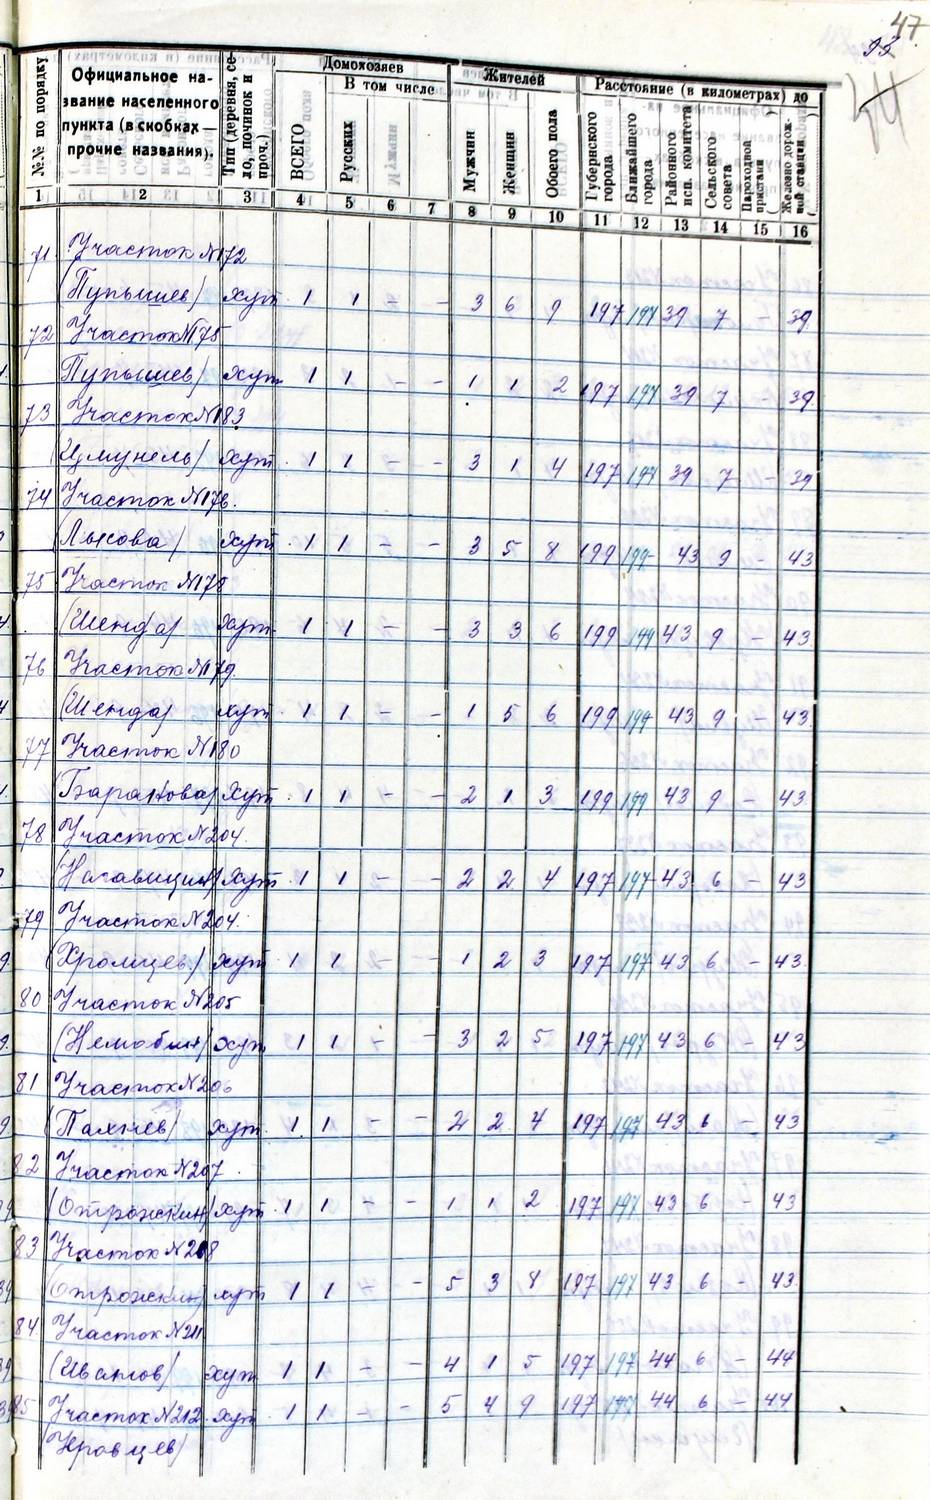 47
33
44
№№ по порядку
Официальное название населенного пункта (в скобках — прочие названия).
Тип (деревня, село, починок и проч.)
Домохозяев
ВСЕГО
В том числе
Русских
Жителей
Мужчин
Женщин
Обоего пола
Расстояние (в километрах) до
Губернского города
Ближайшего города
Районного исп. комитета
Сельского совета
Пароходной пристани
Железно дорожной станции
1 2 3 4 5 6 7 8 9 10 11 12 13 14 15 16
71 Участок №172
(Пупышев) хут 1 1 - - 3 6 9 197 197 39 7 - 39
72 Участок №175
Пупышев) хут 1 1 - - 1 1 2 197 197 39 7 - 39
73 Участок №183
(Цмунель) хут 1 1 - - 3 1 4 197 197 39 7 - 39
74 Участок №176.
(Лысова) хут 1 1 - - 3 5 8 199 199 43 9 43
75 Участок №178
(Шенда) хут 1 1 - - 3 3 6 199 199 43 9 - 43
76 Участок №179.
(Шенда) хут 1 1 - - 1 5 6 199 199 43 9 - 43
77 Участок №180
(Баранова) хут 1 1 - - 2 1 3 199 199 43 9 - 43
78 Участок №204.
хут 1 1 - - 2 2 4 197 197 43 6 - 43
79 Участок №204.
(Хромцев.) хут 1 1 - - 1 2 3 197 197 43 6 - 43
80 Участок №205
хут 1 1 - - 3 2 5 197 197 43 6 - 43
81 Участок №206
(Пахнев) хут. 1 1 - - 2 2 4 197 197 43 6 - 43
82 Участок №207
(Отрожкин) хут 1 1 - - 1 1 2 197 197 43 6 - 43
83 Участок №208
(Отрожкин) хут 1 1 - - 5 3 8 197 197 43 6 - 43
84 Участок №211
(Иванов) хут 1 1 - - 4 1 5 197 197 44 6 - 44
85 Участок №212 хут 1 1 - - 5 4 9 197 197 44 6 - 44
Кровцев)